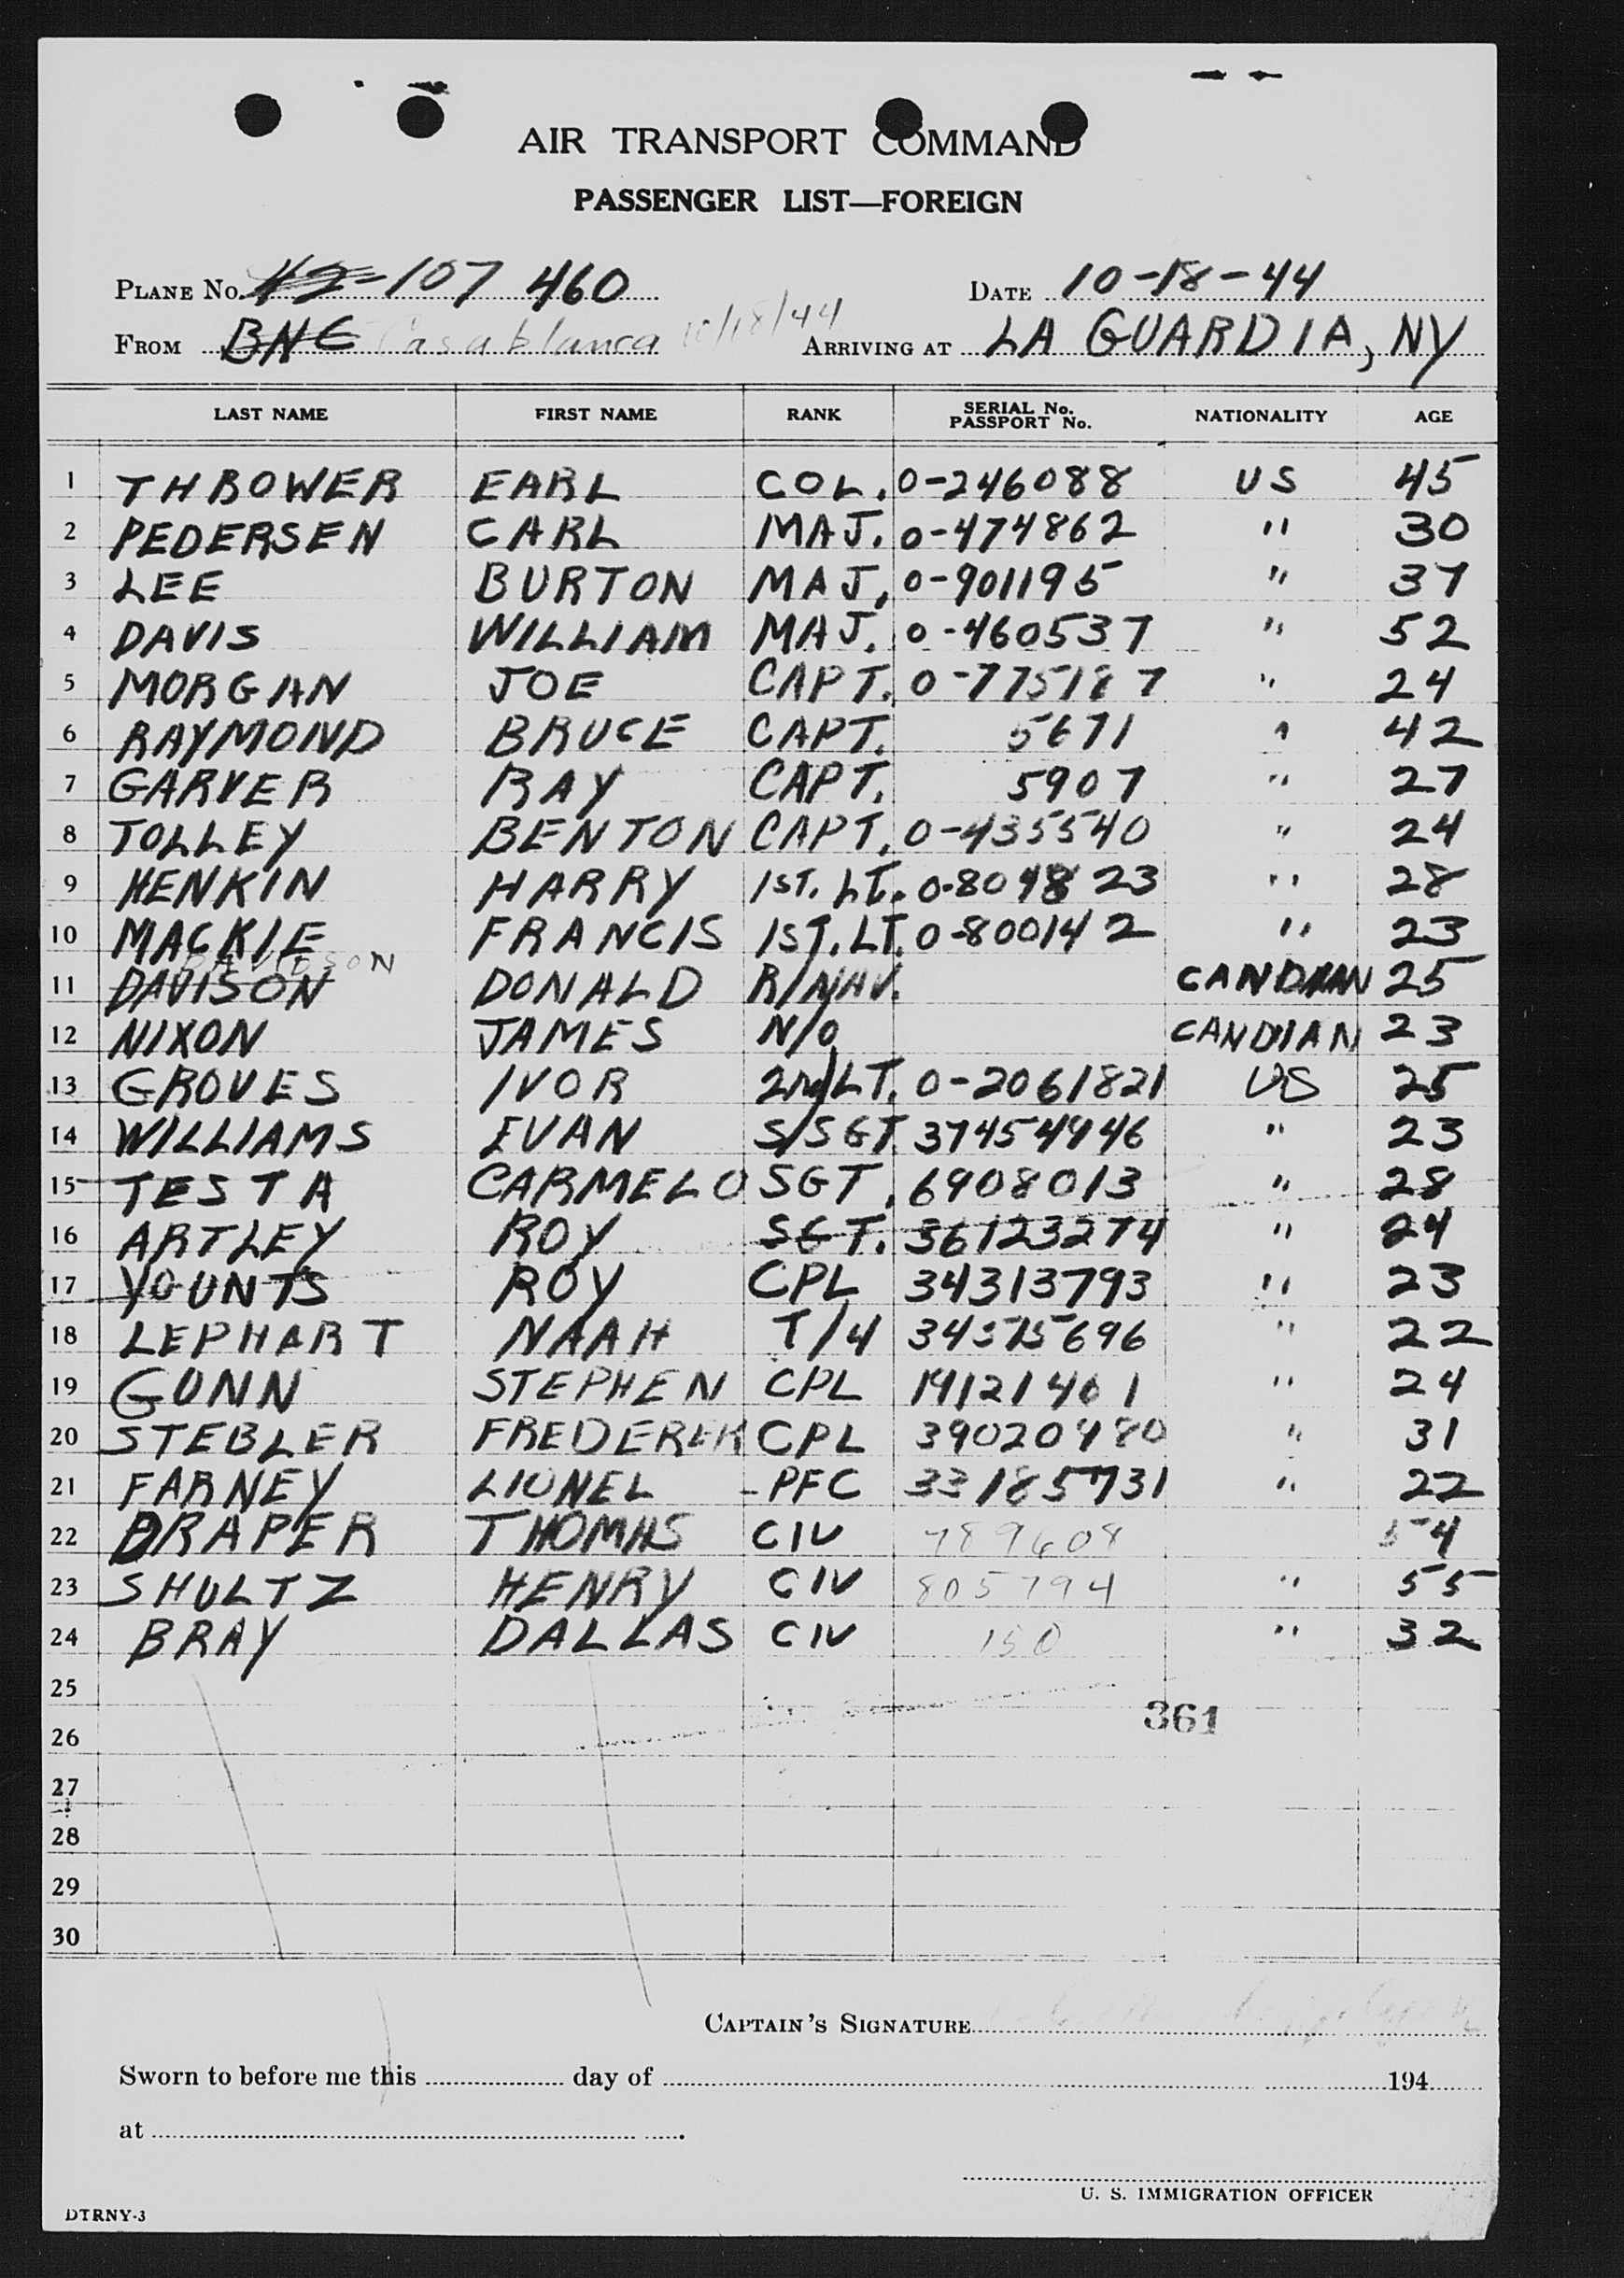 AIR TRANSPORT COMMAND
PASSENGER LIST—FOREIGN
PLANE No. 42-107 460 DATE 10-18-44
FROM BNE Casablanca 10/18/44 ARRIVING AT LA GUARDIA, NY
LAST NAME FIRST NAME RANK SERIAL No. PASSPORT No. NATIONALITY AGE
1 THROWER EARL COL. 0-246088 US 45
2 PEDERSEN CARL MAJ. 0-474862 " 30
3 LEE BURTON MAJ. 0-901195 " 37
4 DAVIS WILLIAM MAJ. 0-460537 " 52
5 MORGAN JOE CAPT. 0-775187 " 24
6 RAYMOND BRUCE CAPT. 5671 " 42
7 GARVER RAY CAPT. 5907 " 27
8 TOLLEY BENTON CAPT. 0-435540 " 24
9 HENKIN HARRY 1ST. LT. 0-804823 " 28
10 MACKIE FRANCIS 1ST. LT. 0-800142 " 23
DAVIDSON
11 DAVISON DONALD R/NAV. CANDIAN 25
12 NIXON JAMES N/O CANDIAN 23
13 GROVES IVOR 2nd LT. 0-2061821 US 25
14 WILLIAMS EVAN S/SGT. 37454946 " 23
15 TESTA CARMELO SGT. 6908013 " 28
16 ARTLEY ROY SGT. 36123274 " 24
17 YOUNTS ROY CPL 34313793 " 23
18 LEPHART NAAH T/4 34575696 " 22
19 GUNN STEPHEN CPL 19121401 " 24
20 STEBLER FREDEREK CPL 39020480 " 31
21 FARNEY LIONEL PFC 33185731 " 22
22 DRAPER THOMAS CIV 789608 54
23 SHULTZ HENRY CIV 805794 " 55
24 BRAY DALLAS CIV 150 " 32
25
361
26
27
28
29
30
CAPTAIN'S SIGNATURE
Sworn to before me this day of 194
at
U. S. IMMIGRATION OFFICER
DTRNY-3